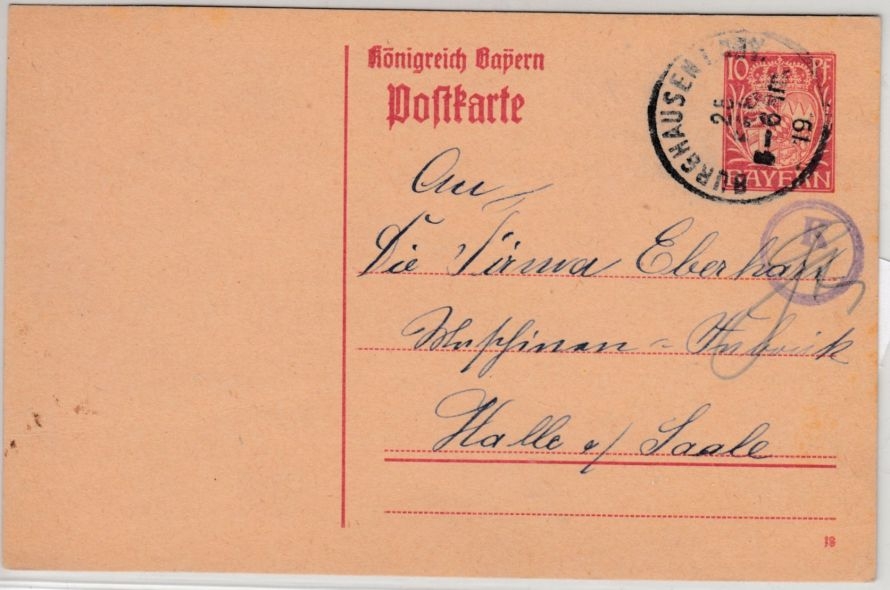 Königreich Bayern
Postkarte
10 Pf.
BAYERN
BURGHAUSEN
25
19
K
An
Die Firma Eberhart
Maschinen = Fabrik
Halle a/ Saale
18